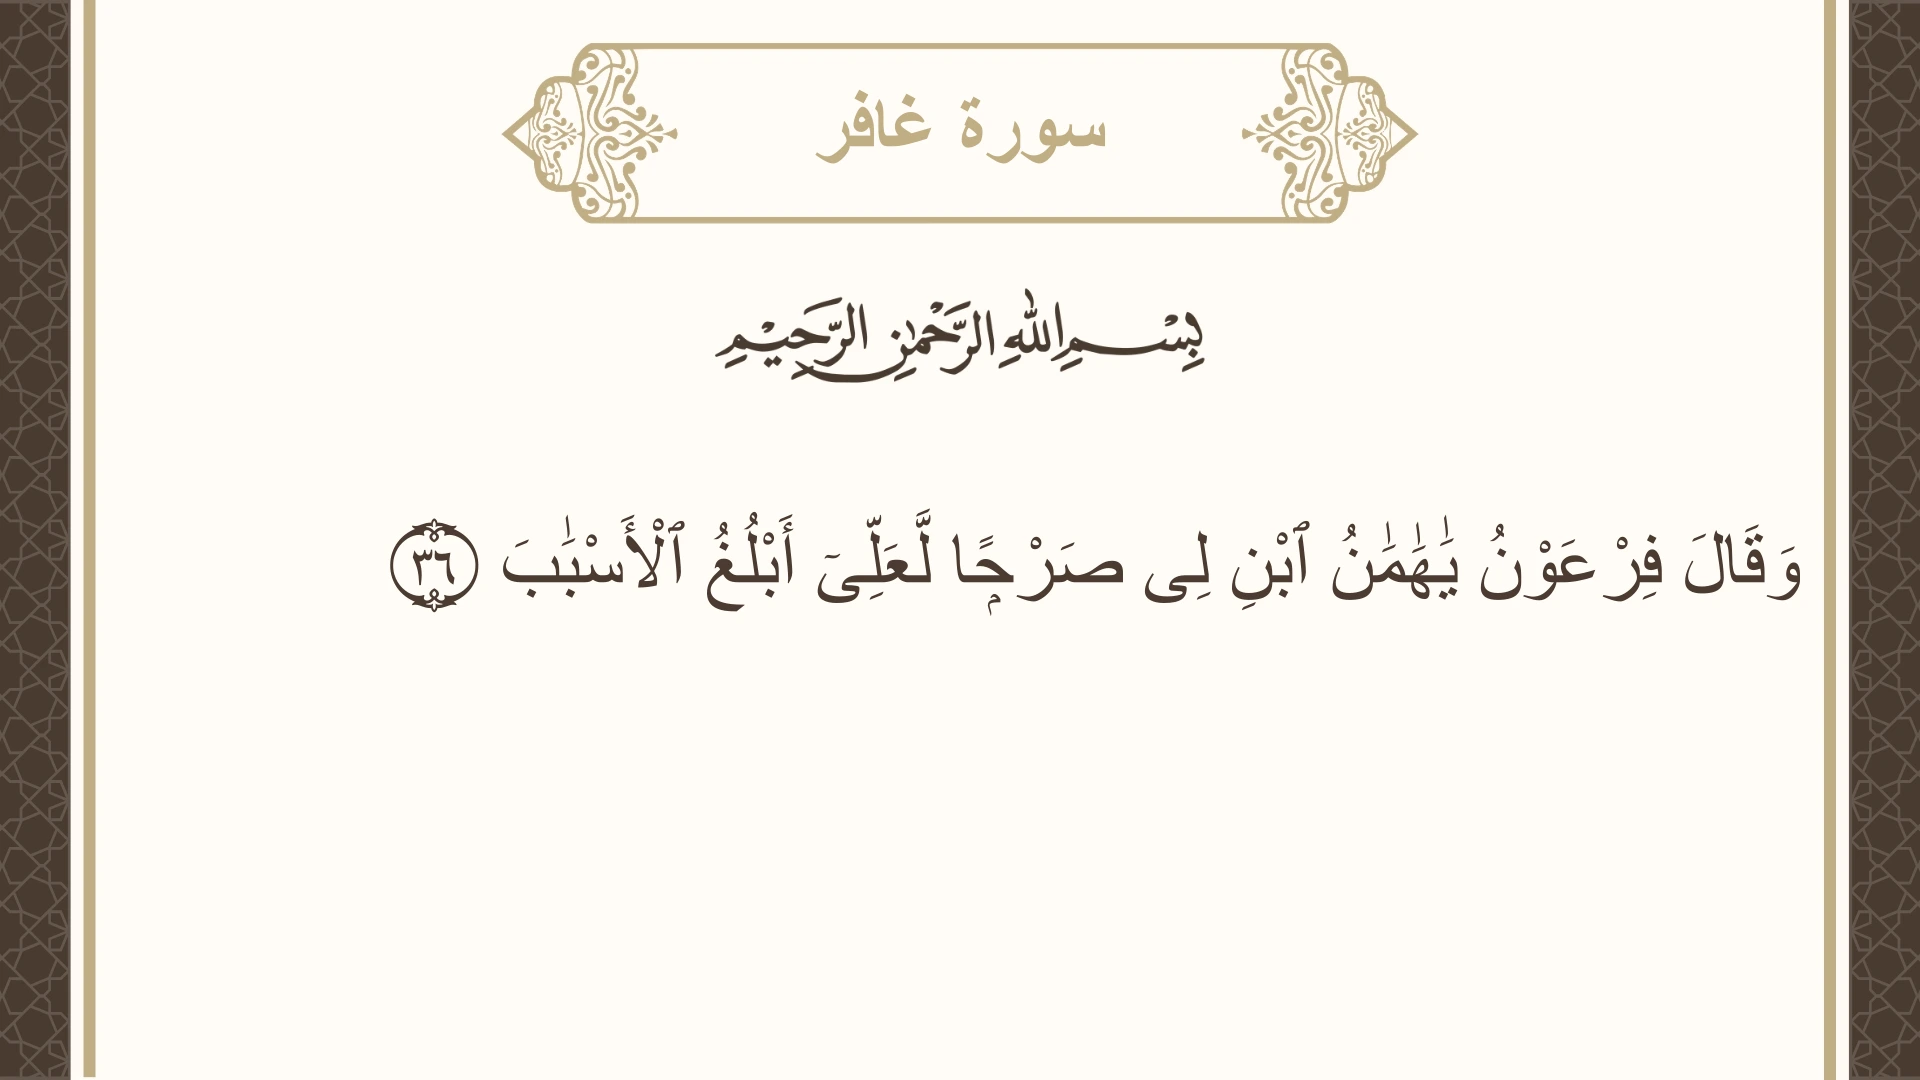 سورة غافر
بِسْمِ اللهِ الرَّحْمٰنِ الرَّحِيْمِ
وَقَالَ فِرْعَوْنُ يَٰهَٰمَٰنُ ٱبْنِ لِى صَرْحًۭا لَّعَلِّىٓ أَبْلُغُ ٱلْأَسْبَٰبَ ٣٦